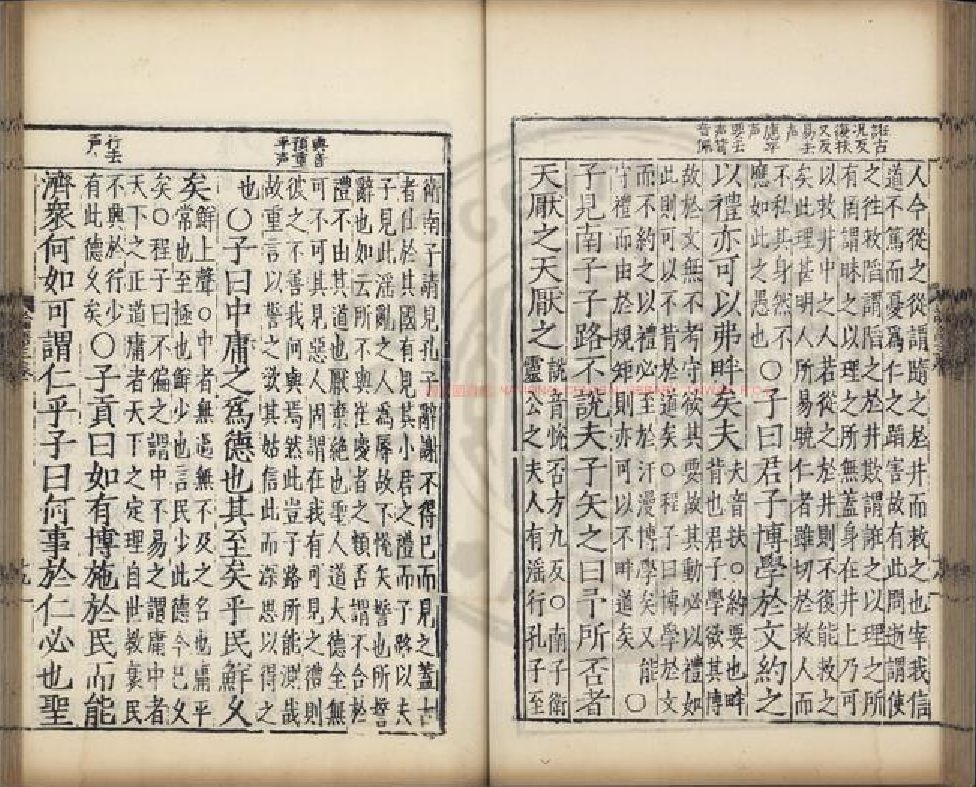 誑古
况反
復扶
又反
易去
声
應平
声
要去
声背
音佩
人今從之從謂隨之於井而救之也宰我信
道不篤而憂爲仁之蹈害故有此問逝謂使
之往救陷謂陷之於井欺謂誑之以理之所
有罔謂昧之以理之所無蓋身在井上乃可
以救井中之人若從之於井則不復能救之
矣此理甚明人所易曉仁者雖切於救人而
不私其身然不
應如此之愚也
○子曰君子博學於文約之
以禮亦可以弗畔矣夫
夫音扶○約要也畔
背也君子學欲其博
故於文無不考守欲其要故其動必以禮如
此則可以不背於道矣○程子曰博學於文
而不約之以禮必至於汗漫博學矣又能
守禮而由於規矩則亦可以不畔道矣
○
子見南子子路不說夫子矢之曰予所否者
天厭之天厭之
說音悅否方九反○南子衛
靈公之夫人有淫行孔子至
與音
預重
平声
行去
声
衛南子請見孔子辭謝不得已而見之蓋古
者仕於其國有見其小君之禮而子路以夫
子見此淫亂之人爲辱故不悅矢誓也所誓
辭也如云所不與崔慶者之類否謂不合於
禮不由其道也厭棄絕也聖人道大德全無
可不可其見惡人固謂在我有可見之禮則
彼之不善我何與焉然此豈子路所能測哉
故重言以誓之欲其姑信此而深思以得之
也○子曰中庸之爲德也其至矣乎民鮮久
矣
鮮上聲○中者無過無不及之名也庸平
常也至極也鮮少也言民少此德今已久
矣○程子曰不偏之謂中不易之謂庸中者
天下之正道庸者天下之定理自世教衰民
不興於行少
有此德久矣
○子貢曰如有博施於民而能
濟衆何如可謂仁乎子曰何事於仁必也聖